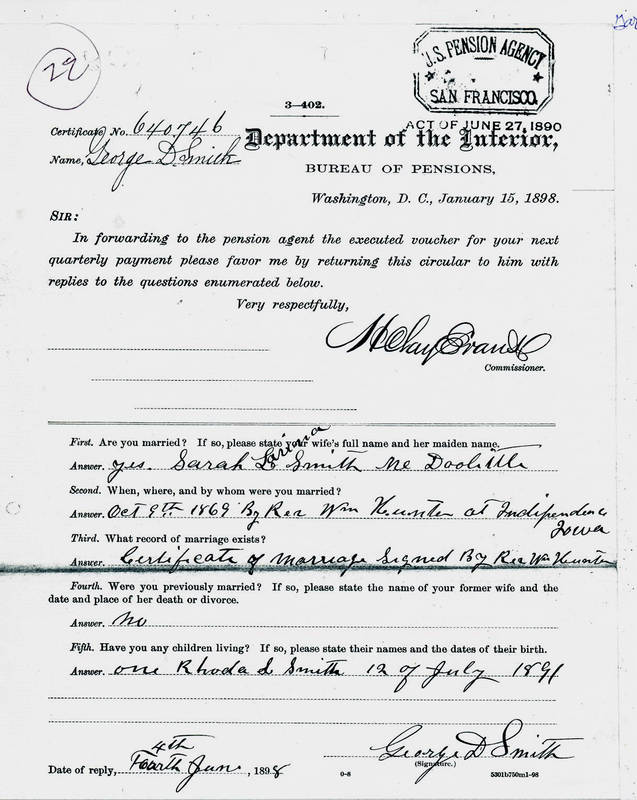 29
U.S. PENSION AGENCY
SAN FRANCISCO.
3—402.
ACT OF JUNE 27, 1890
Certificate No. 640746
Department of the Interior,
Name, George D. Smith
BUREAU OF PENSIONS,
Washington, D. C., January 15, 1898.
SIR:
In forwarding to the pension agent the executed voucher for your next
quarterly payment please favor me by returning this circular to him with
replies to the questions enumerated below.
Very respectfully,
H Clay Evans
Commissioner.
First. Are you married? If so, please state your wife's full name and her maiden name.
Answer. yes. Sarah L Smith Ne Doolittle
Second. When, where, and by whom were you married?
Answer. Oct 9th 1869 By Rev Wm Hunter at Independence
Iowa
Third. What record of marriage exists?
Answer. Certificate of Marriage Signed By Rev Wm Hunter
Fourth. Were you previously married? If so, please state the name of your former wife and the
date and place of her death or divorce.
Answer. No
Fifth. Have you any children living? If so, please state their names and the dates of their birth.
Answer. one Rhoda L Smith 12 of July 1891
4th
Date of reply, Fourth June, 1898
George D Smith
(Signature.)
0-8
5301b750m1-98